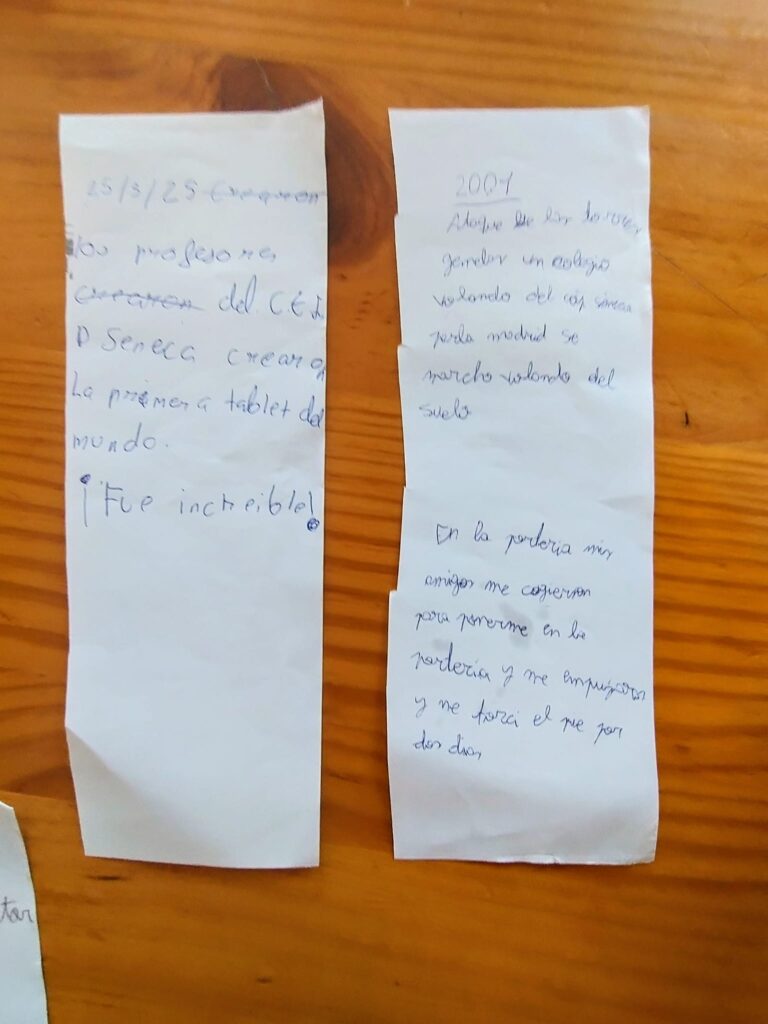 25/3/25 Crearon
los profesores
crearon del C.E.I
P Seneca crearon
La primera tablet del
mundo.
¡Fue increible!
2001
Ataque de las torres
gemelas un colegio
volando del séneca
parla madrid se
marcho volando del
suelo
En la porteria mis
amigos me cogieron
para ponerme en la
porteria y me empujaron
y me torci el pie por
dos dias
tar